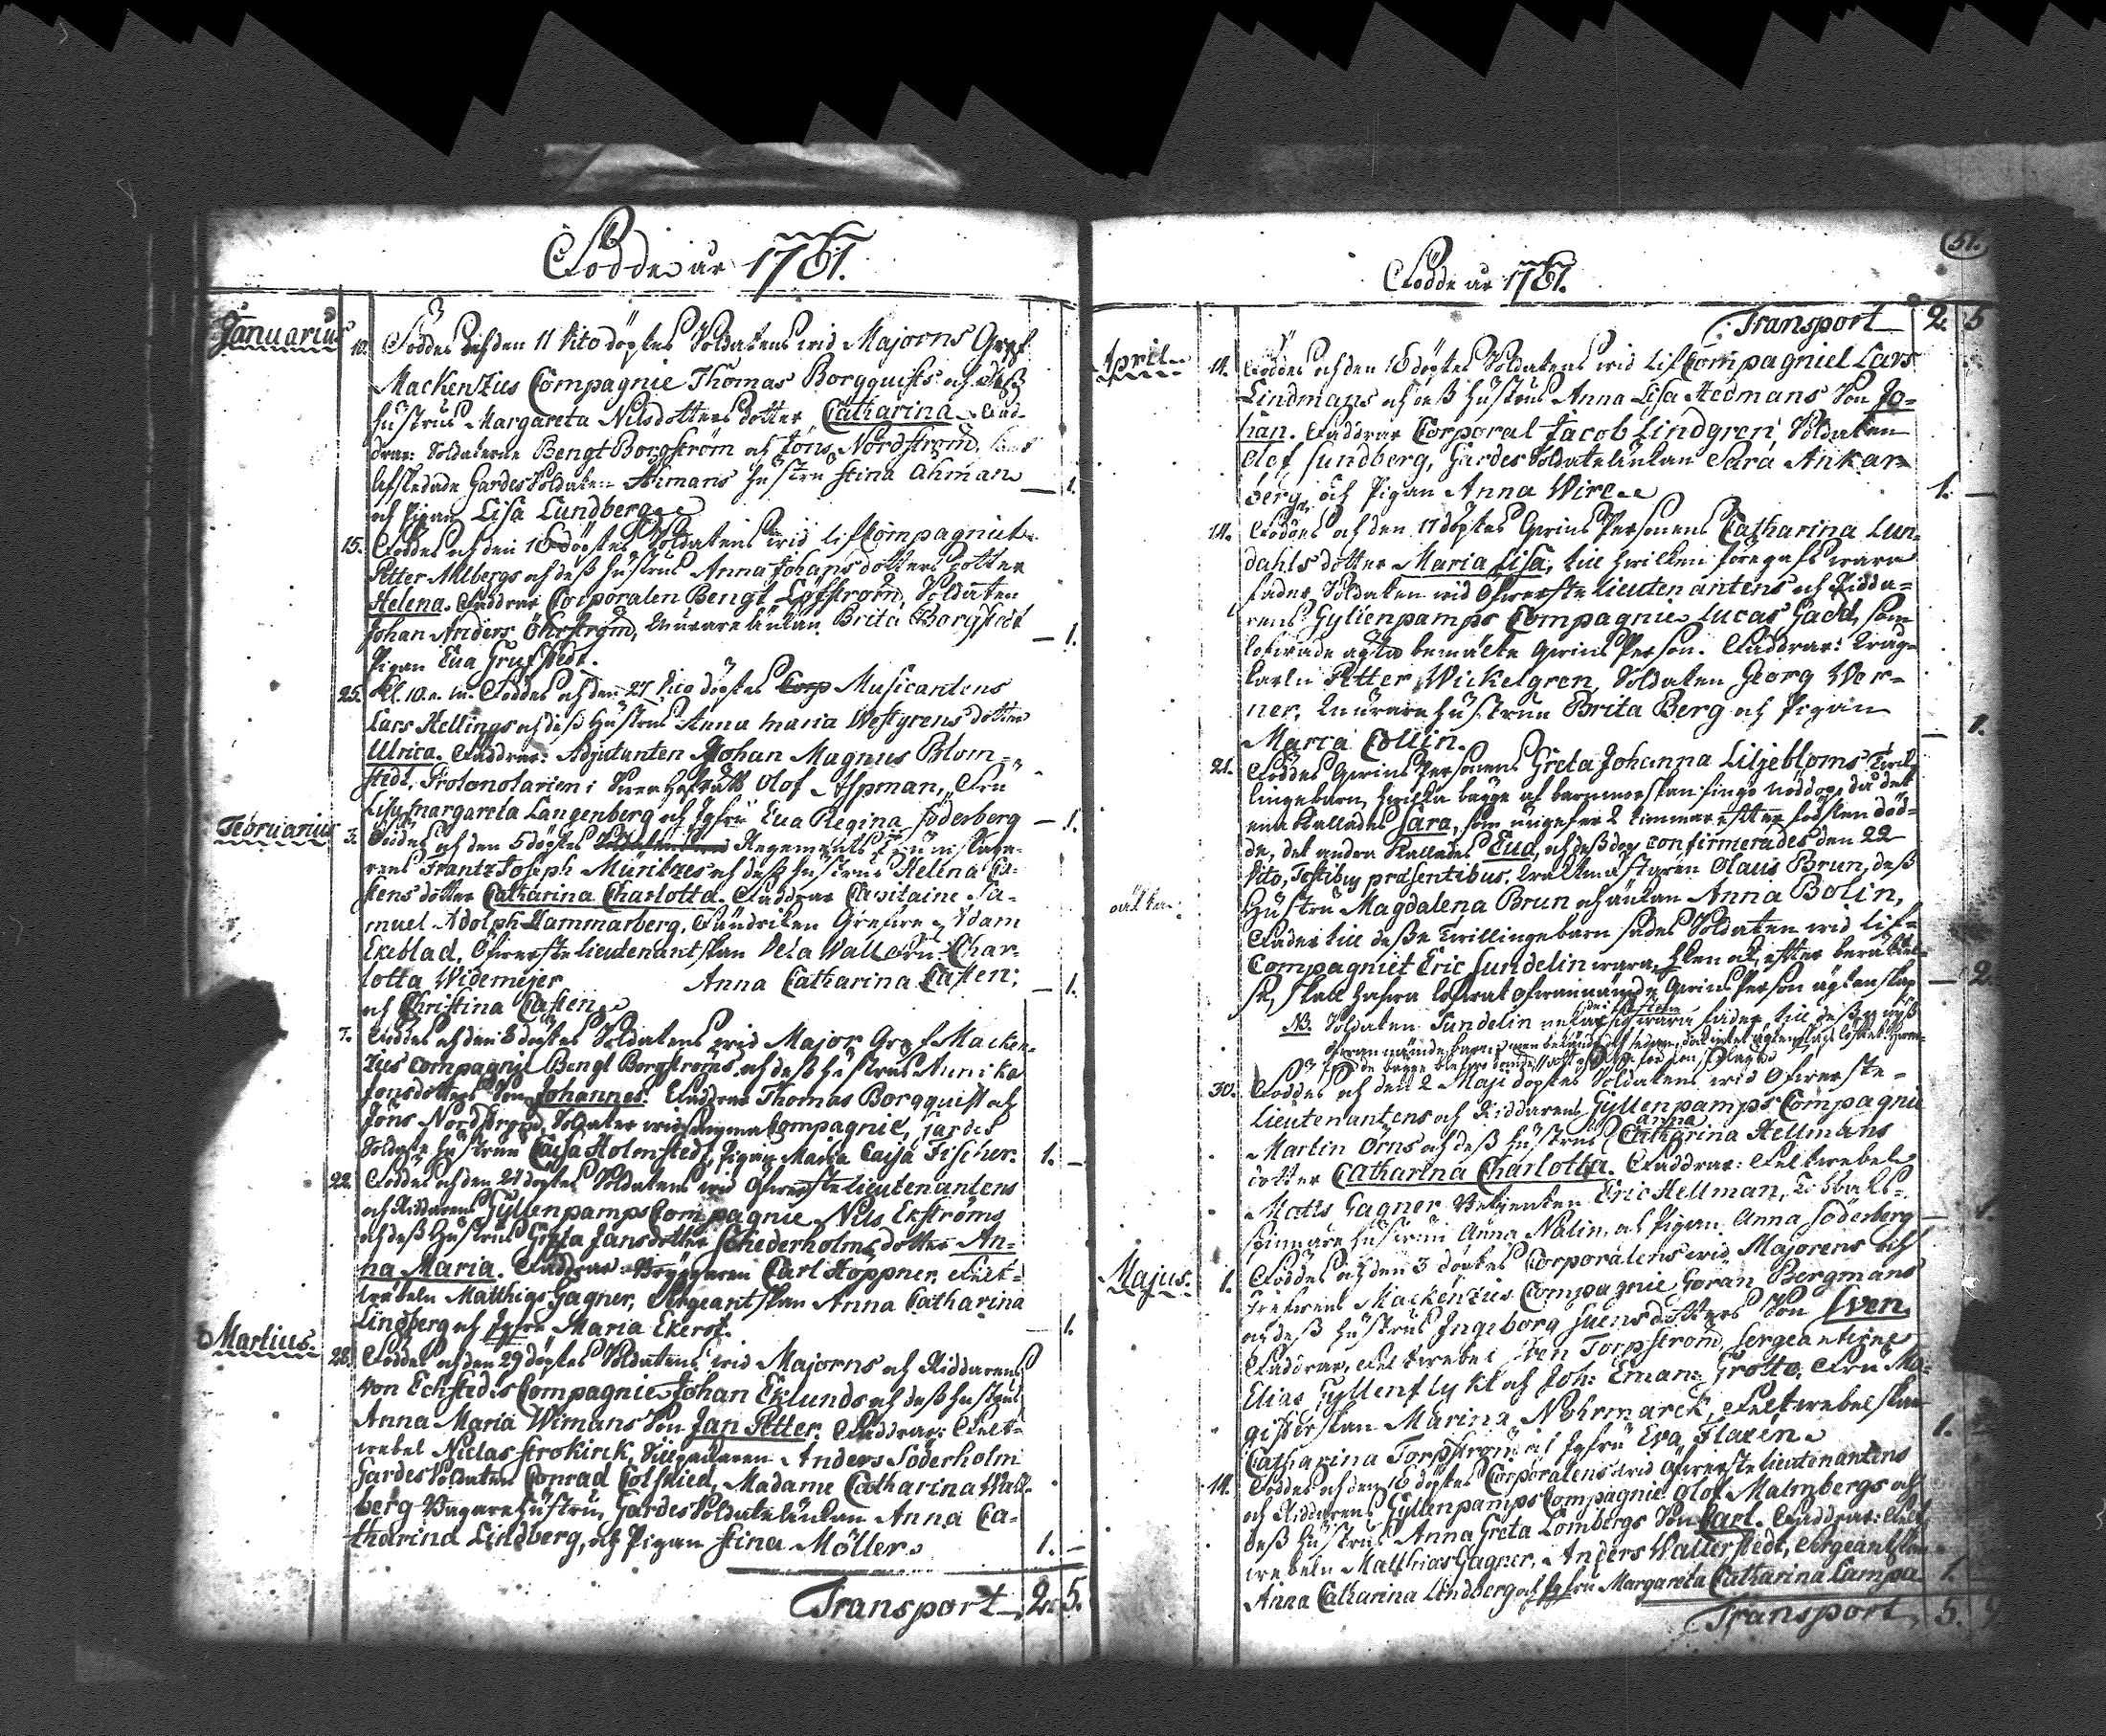 Födde år 1761.
Januarius
10. Föddes och den 11 dito döptes Soldatens wid Majorns Gref
Mackenzius Compagnie Thomas Borgquists och deß
hustrus Margareta Nilsdotters dotter Catharina. Fad-
drar: Soldaterne Bengt Borgström och Jöns Nordström,
afskedade Gardes Soldaten Åhmans hustru Stina Åhman
och Pigan Lisa Lundberg. — 1.
15. Föddes och den 16 döptes Soldatens wid Lif Compagniet
Petter Ahlbergs och deß hustrus Anna Johansdotters dotter
Helena. Faddrar Corporalen Bengt Löfström, Soldaten
Johan Anders Öhrström, Murare änkan Brita Borgstedt — 1.
Pigan Eva Grufstedt.
25. Kl. 10 e. m. Föddes och den 27 dito döptes Corp Musicantens
Lars Hellings och deß hustrus Anna Maria Westgrens dotter
Ulrica. Faddrar: Adjutanten Johan Magnus Blom-
stedt, Protonotarien i Swea Hofrätt Olof Aspman, Fru
Margareta Langenberg och Jgfru Eva Regina Söderberg — 1.
Februarius
3. Föddes och den 5 döptes Regements
rens Frantz Joseph Müritzes och deß hustrus Helena Ca-
stens dotter Catharina Charlotta. Faddrar Capitaine Sa-
muel Adolph Hammarberg, Fändriken Grefwe Adam
Ekeblad, Öfwerste Lieutenantskan De la Wall Fru Char-
lotta Widemejer Anna Catharina Casten; — 1.
och Christina Casten.
7. Föddes och den 8 döptes Soldatens wid Major Gref Macken-
zius Compagnie Bengt Borgströms och deß hustrus Annika
Jonsdotters Son Johannes. Faddrar Thomas Borgquist och
Jöns Nordström, Soldater wid samma Compagnie, Gardes
Soldate hustrun Caisa Holmstedt, Pigan Maria Caisa Fischer. 1. —
22. Föddes och den 24 döptes Soldatens wid Öfwerste Lieutenantens
och Riddarens Gyllenpamps Compagnie Nils Ekströms
och deß hustrus Greta Jansdotter Schederholms dotter An-
na Maria. Faddrar Bryggaren Carl Hoppner, Felt-
webeln Matthias Gagner, Sergeantskan Anna Catharina
Lindberg och Jgfru Maria Ekerot. — 1.
Martius.
28. Föddes och den 29 döptes Soldatens wid Majorns och Riddarens
von Echstedts Compagnie Johan Eklunds och deß hustrus
Anna Maria Wimans Son Jan Petter. Faddrar: Felt-
webel Niclas Strokirck, Anders Söderholm
Gardes Soldaten Conrad Cotskied, Madame Catharina Wall-
berg Bagare hustru, Gardes Soldate änkan Anna Ca-
tharina Lindberg, och Pigan Stina Möller. 1. —
Transport — 2. 5.
51.
Födde år 1761.
Transport 2. 5
April
14. Föddes och den 16 döptes Soldatens wid Lif Compagniet Lars
Lindmans och deß hustrus Anna Lisa Hedmans Son Jo-
han. Faddrar Corporal Jacob Lindgren, Soldaten
Olof Sundberg, Gardes Soldate änkan Sara Ankar-
berg, och Pigan Anna Wire 1. —
14. Föddes och den 17 döptes Qwins Personens Catharina Lun-
dahls dotter Maria Lisa, till hwilken föregafs wara
fader Soldaten wid Öfwerste Lieutenantens och Ridda-
rens Gyllenpamps Compagnie Lucas Gadd, som
lofwade ägta bemälte Qwins Person. Faddrar: Drag-
karln Petter Wickelgren, Soldaten Georg Wer-
ner, Murare hustrun Brita Berg och Pigan
Maria Collin. — 1.
21. Föddes Qwins Personens Greta Johanna Liljebloms Twil-
lingebarn, hwilka bägge af barnmorskan fingo nöddop, då det
ena kallades Sara, som ungefer 2 timmar efter födslen död-
de, det andra kallades Eva, och deß dop confirmerades den 22
dito, Testibus præsentibus. Walkmästaren Olaus Brun, deß
Hustru Magdalena Brun och änkan Anna Bolin,
Fader till deße Twillingebarn sades Soldaten wid Lif-
Compagniet Eric Sundelin wara, hwilken ock, efter berättel-
se, skall hafwa lofwat ofwannämde Qwins Person ägtenskap — 2.
oäkta
NB. Soldaten Sundelin nekar sig wara fader till deße twå
30. Föddes och den 2 Maji döptes Soldatens wid Öfwerste-
Lieutenantens och Riddarens Gyllenpamps Compagnie
Martin Orns och deß hustrus Anna Catharina Hellmans
dotter Catharina Charlotta. Faddrar: Feltwebel
Matts Gagner Betjenten Eric Hellman, Tobbaks-
spinnare hustrun Anna Nalin, och Pigan Anna Söderberg — 1.
Majus.
1. Föddes och den 3 döptes Corporalens wid Majorens och
Grefwens Mackenzius Compagnie Göran Bergmans
och deß hustrus Ingeborg Svensdotters Son Sven.
Faddrar, Feltwebel Sven Torpström, Sergeanterne
Elias Gyllenflykt och Joh: Eman: Grotte, Fru Ma-
gisterskan Marina Nohrmarck, Feltwebelskan
Catharina Torpström och Jgfru Eva Floren. 1.
14. Föddes och den 16 döptes Corporalens wid Öfwerste Lieutenantens
och Riddarens Gyllenpamps Compagnie Olof Malmbergs och
deß hustrus Anna Greta Lombergs Son Carl. Faddrar: Felt-
webeln Matthias Gagner, Anders Wallerstedt, Sergeantskan
Anna Catharina Lindberg och Jgfru Margareta Catharina Campa 1.
Transport 5. 9